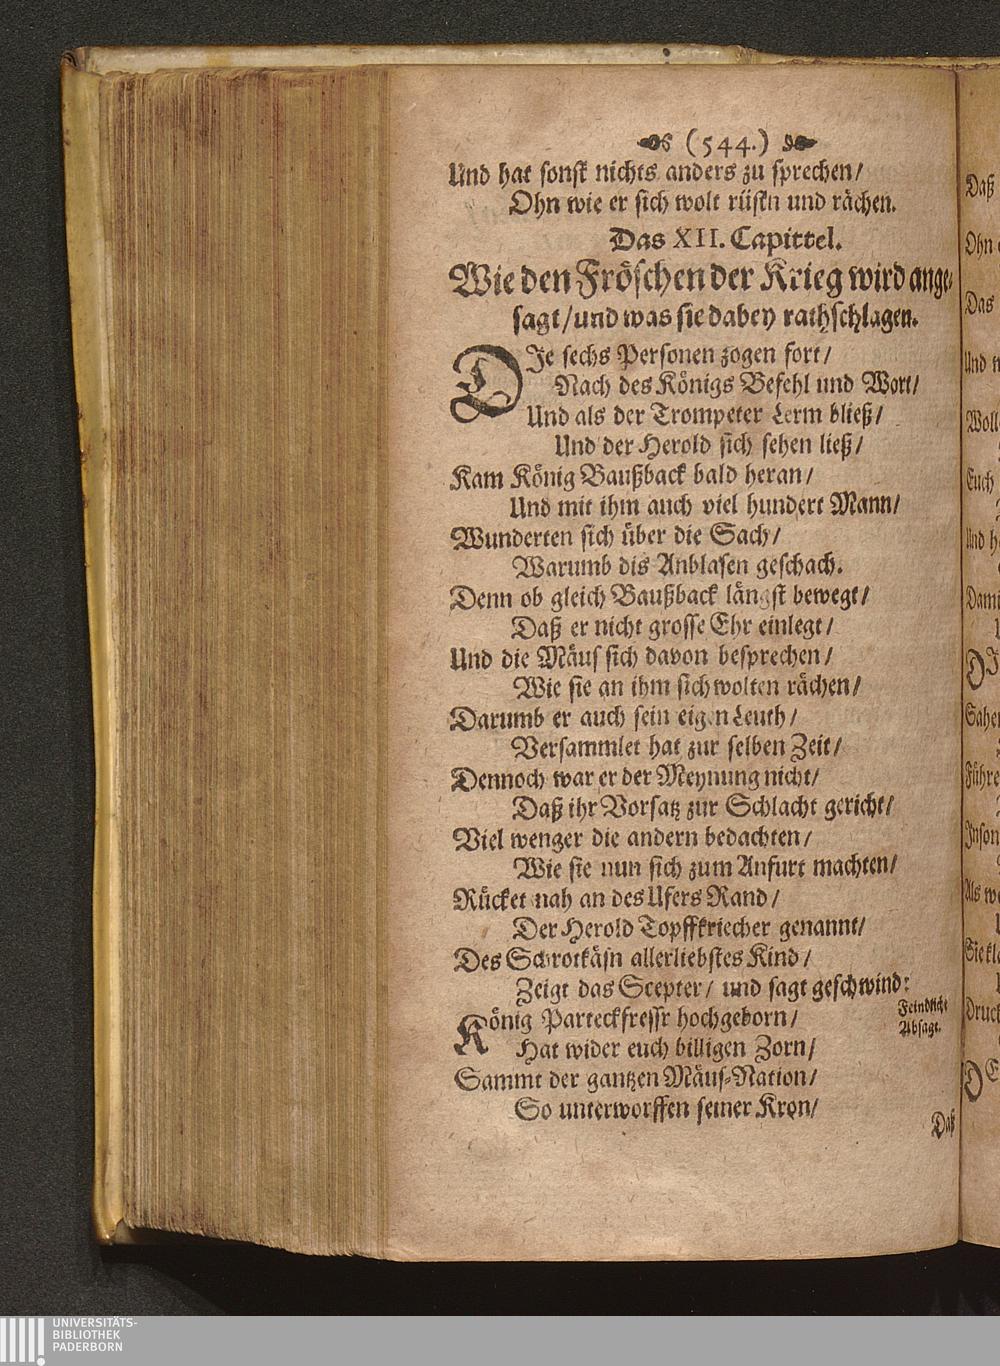 (544.)
Und hat sonst nichts anders zu sprechen/
Ohn wie er sich wolt rüstn und rächen.
Das XII. Capittel.
Wie den Fröschen der Krieg wird ange-
sagt/und was sie dabey rathschlagen.
DIe sechs Personen zogen fort/
Nach des Königs Befehl und Wort/
Und als der Trompeter Lerm bließ/
Und der Herold sich sehen ließ/
Kam König Baußback bald heran/
Und mit ihm auch viel hundert Mann/
Wunderten sich über die Sach/
Warumb dis Anblasen geschach.
Denn ob gleich Baußback längst bewegt/
Daß er nicht grosse Ehr einlegt/
Und die Mäus sich davon besprechen/
Wie sie an ihm sich wolten rächen/
Darumb er auch sein eigen Leuth/
Versammlet hat zur selben Zeit/
Dennoch war er der Meynung nicht/
Daß ihr Vorsatz zur Schlacht gericht/
Viel wenger die andern bedachten/
Wie sie nun sich zum Anfurt machten/
Rücket nah an des Ufers Rand/
Der Herold Topffkriecher genannt/
Des Schrotkäsn allerliebstes Kind/
Zeigt das Scepter/ und sagt geschwind:
König Parteckfressr hochgeborn/
Hat wider euch billigen Zorn/
Sammt der gantzen Mäus-Nation/
So unterworffen seiner Kron/
Feindliche
Absage.
Daß
Daß
Ohn
Das
Und
Euch
Und
UNIVERSITÄTS-
BIBLIOTHEK
PADERBORN